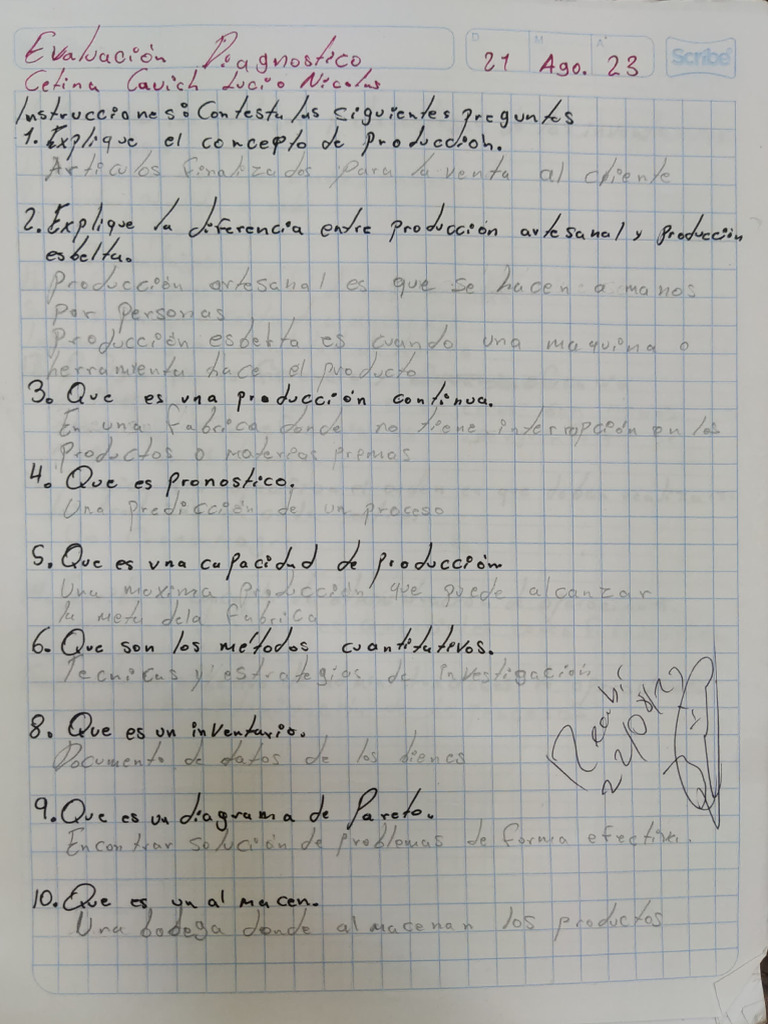 Evaluación Diagnostico
D M A
21 Ago. 23
Scribe
Cetina Cavich Lucio Nicolas
Instrucciones: Contesta las siguientes preguntas
1. Explique el concepto de Producción.
Articulos finalizados para la venta al cliente
2. Explique la diferencia entre producción artesanal y producción
esbelta.
Producción artesanal es que se hacen a manos
por personas
Producción esbelta es cuando una maquina o
herramienta hace el producto
3. Que es una producción continua.
En una fabrica donde no tiene interropción en los
productos o materas premas
4. Que es pronostico.
Una predicción de un proceso
5. Que es una capacidad de producción
Una maxima producción que puede alcanzar
la meta dela fabrica
6. Que son los métodos cuantitutivos.
Tecnicas y estrategias de investigación
8. Que es un inventario.
Documento de datos de los bienes
9. Que es un diagrama de Pareto.
Encontrar solución de problemas de forma efectiva.
10. Que es un almacen.
Una bodega donde almacenan los productos
Recibí
22/08/23